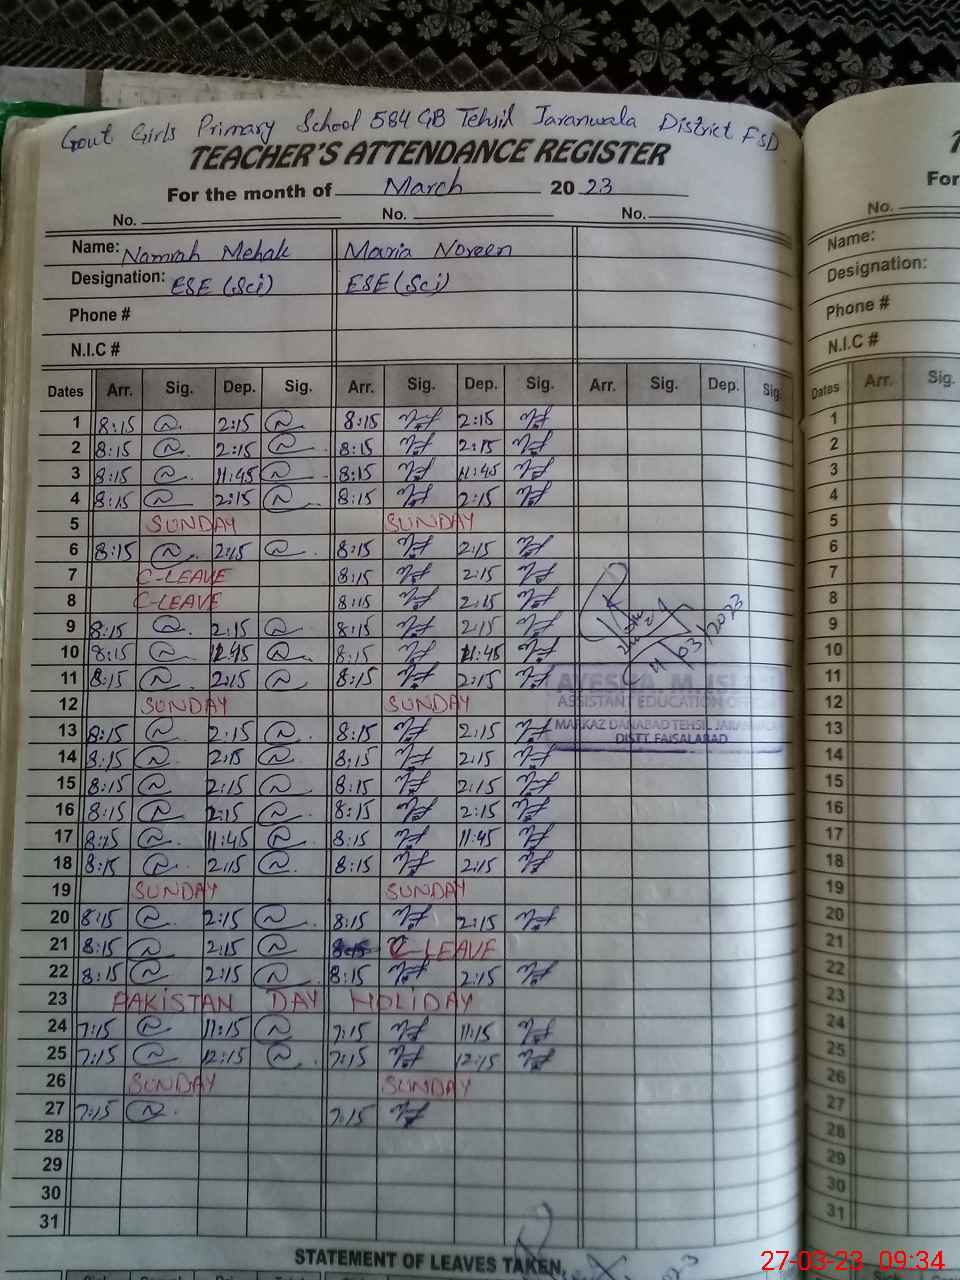 Govt Girls Primary School 584 GB Tehsil Jaranwala District FSD
TEACHER'S ATTENDANCE REGISTER
For the month of March 20 23
No. No. No.
Name: Namrah Mehak Maria Noreen
Designation: ESE (Sci) ESE (Sci)
Phone #
N.I.C #
Dates Arr. Sig. Dep. Sig. Arr. Sig. Dep. Sig. Arr. Sig. Dep. Sig.
1 8:15 2:15 8:15 2:15
2 8:15 2:15 8:15 2:15
3 8:15 11:45 8:15 11:45
4 8:15 2:15 8:15 2:15
5 SUNDAY SUNDAY
6 8:15 2:15 8:15 2:15
7 C-LEAVE 8:15 2:15
8 C-LEAVE 8:15 2:15
9 8:15 2:15 8:15 2:15
10 8:15 8:15 11:45
11 8:15 2:15 8:15 2:15
12 SUNDAY SUNDAY
13 8:15 2:15 8:15 2:15
14 8:15 2:15 8:15 2:15
15 8:15 2:15 8:15 2:15
16 8:15 2:15 8:15 2:15
17 8:15 11:45 8:15 11:45
18 8:15 2:15 8:15 2:15
19 SUNDAY SUNDAY
20 8:15 2:15 8:15 2:15
21 8:15 2:15 C-LEAVE
22 8:15 2:15 8:15 2:15
23 PAKISTAN DAY HOLIDAY
24 7:15 11:15 7:15 11:15
25 7:15 12:15 7:15 12:15
26 SUNDAY SUNDAY
27 7:15 7:15
28
29
30
31
STATEMENT OF LEAVES TAKEN,
/03/2023
AYESHA
ASSISTANT EDUCATION
MARKAZ DANABAD TEHSIL
DISTT. FAISALABAD
For
No.
Name:
Designation:
Phone #
N.I.C #
Dates Arr. Sig.
1
2
3
4
5
6
7
8
9
10
11
12
13
14
15
16
17
18
19
20
21
22
23
24
25
26
27
28
29
30
31
27-03-23 09:34